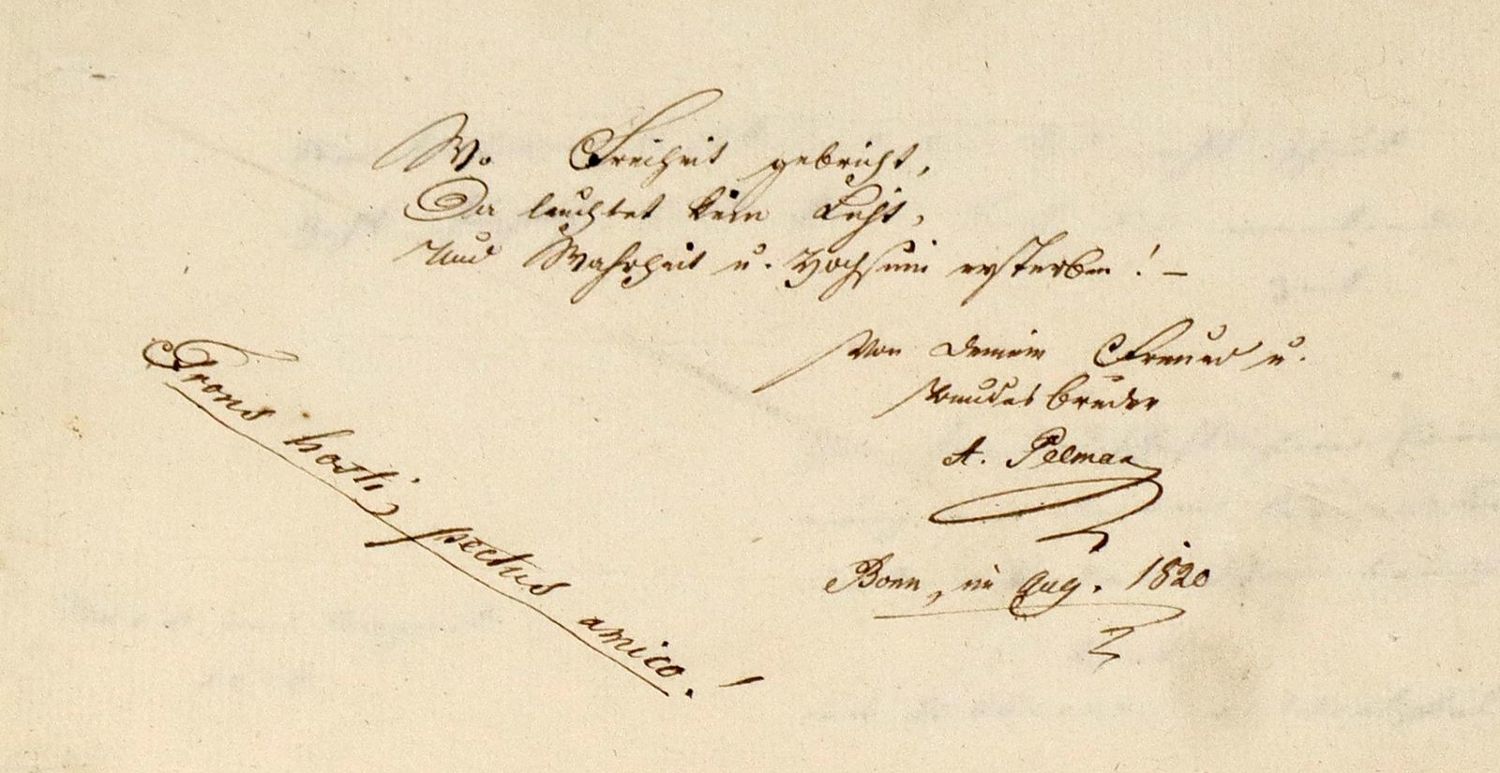 Wo Freiheit gebricht,
Da leuchtet kein Licht,
Und Wahrheit u. Hochsinn ersterben! –
Von Deinem Freund u.
Bundesbruder
A. Pelman
Bonn, im Aug. 1820
Frons hosti, pectus amico!